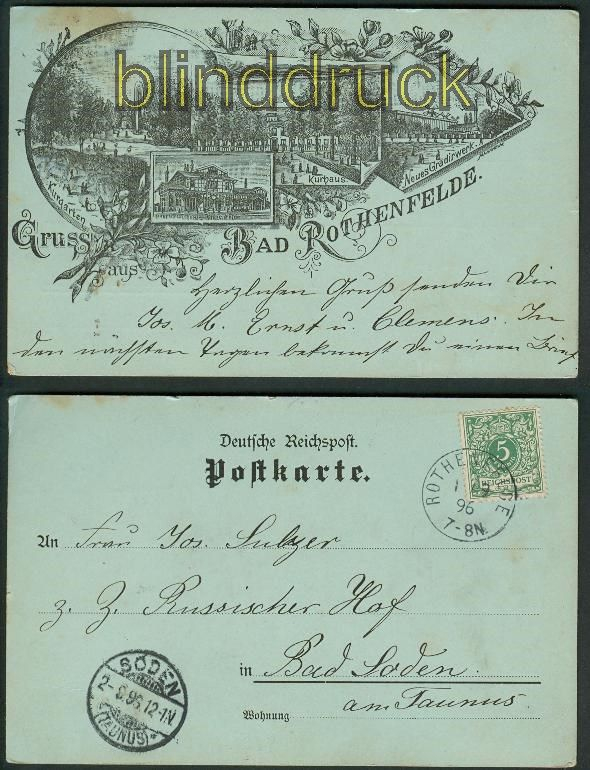 blinddruck
Kurgarten
Kurhaus.
Neues Gradirwerk.
Gruss
aus
BAD ROTHENFELDE.
Herzlichen Gruß senden Dir
Jos. M. Ernst u. Clemens. In
den nächsten Tagen bekommst Du einen Brief
Deutsche Reichspost.
Postkarte.
5
REICHSPOST
ROTHENFELDE
96
7-8N.
An Frau Jos. Sulzer
z. Z. Russischer Hof
in Bad Soden
am Taunus.
Wohnung
SODEN
96 12-1N
(TAUNUS)